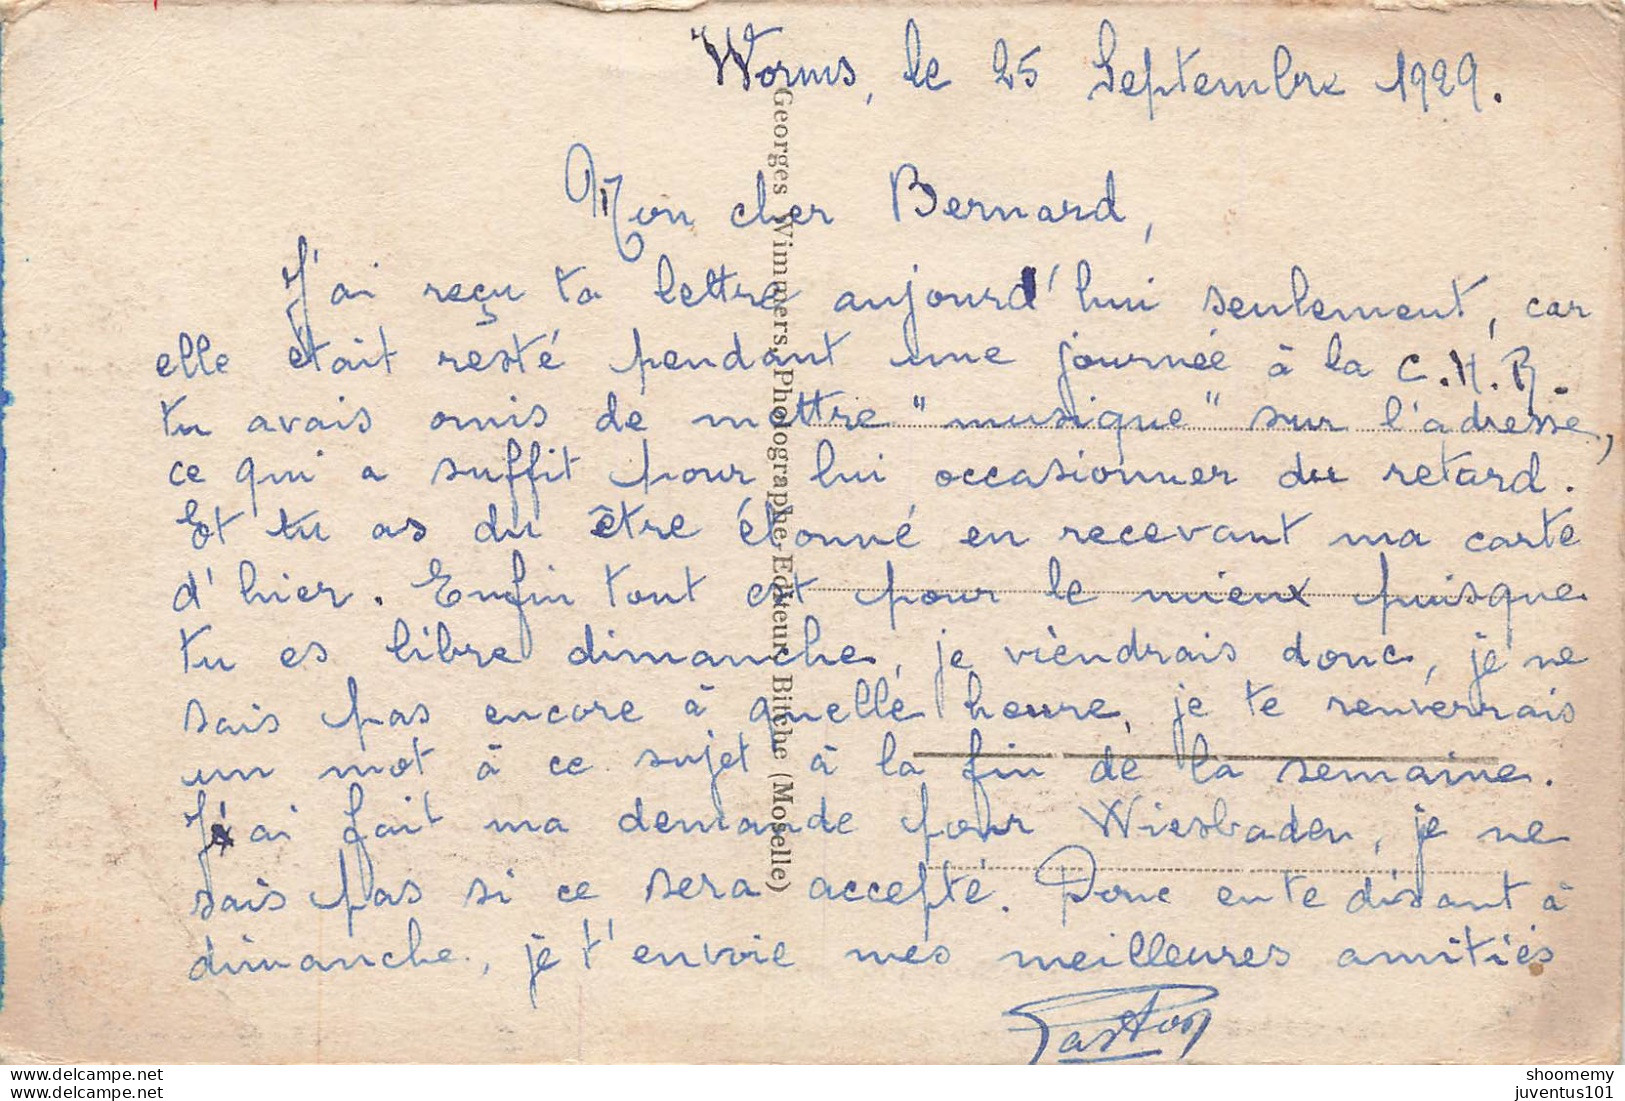 Worms, le 25 Septembre 1929.
Mon cher Bernard,
J'ai reçu ta lettre aujourd'hui seulement, car
elle était resté pendant une journée à la C.H.R.
tu avais omis de mettre "musique" sur l'adresse,
ce qui a suffit pour lui occasionner du retard.
Et tu as du être étonné en recevant ma carte
d'hier. Enfin tout est pour le mieux puisque
tu es libre dimanche, je viendrais donc, je ne
sais pas encore à quelle heure, je te renverrais
un mot à ce sujet à la fin de la semaine.
J'ai fait ma demande pour Wiesbaden, je ne
sais pas si ce sera accepté. Donc en te disant à
dimanche, je t'envoie mes meilleures amitiés
Gaston
Georges Wimmers, Photographe-Editeur, Bitche (Moselle)
www.delcampe.net
www.delcampe.net
shoomemy
juventus101